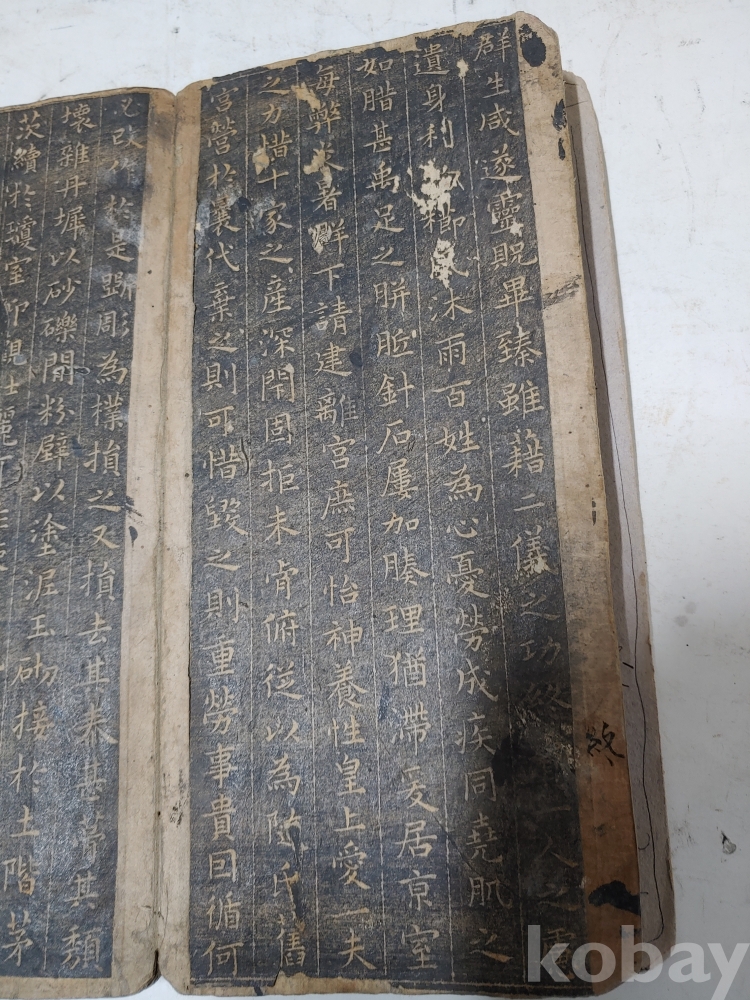 群生咸遂靈貺畢臻雖藉二儀之功終一人之慮
遺身利櫛風沐雨百姓為心憂勞成疾同堯肌之
如腊甚禹足之胼胝針石屢加腠理猶滯爰居京室
每弊炎暑群下請建離宮庶可怡神養性皇上愛一夫
之力惜十家之產深閇固拒未肯俯從以為随氏舊
宮營於曩代棄之則可惜毀之則重勞事貴因循何
必改作於是斲彫為樸損之又損去其泰甚葺其頹
壞雜丹墀以砂礫間粉壁以塗泥玉砌接於土階茅
茨續於瓊室仰觀壯麗可
終
kobay